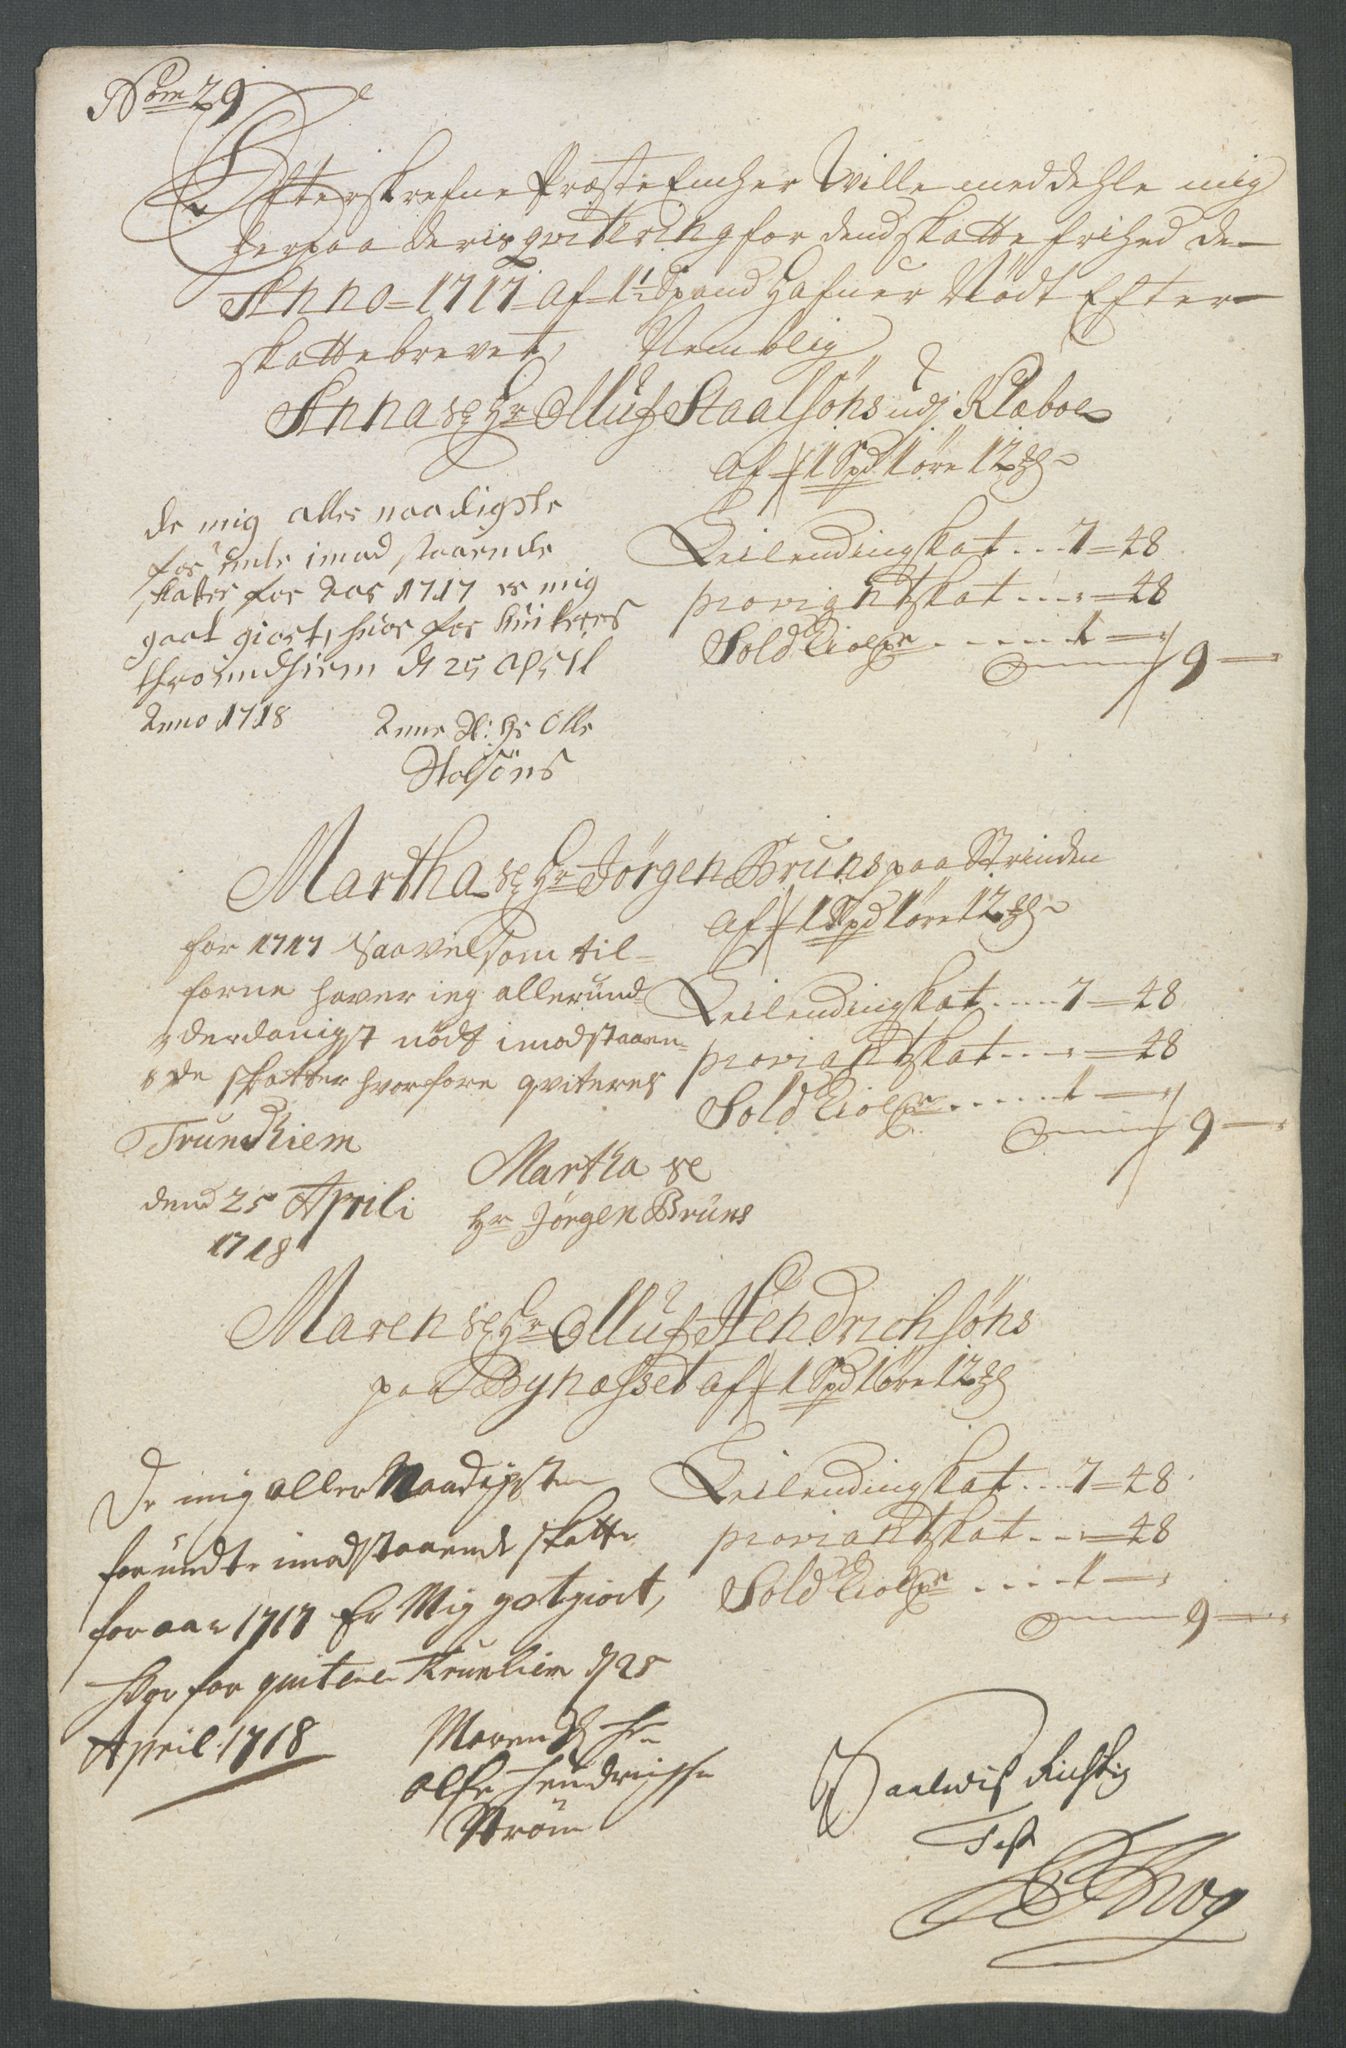 Nom 29
Efterskrefne Præste Encker Wille meddehle mig
herpaa deris qvitering for dend skatte frihed de
Anno 1717 af 1½ Spand Hafuer Nödt Efter
skattebrevet, Nemblig
Anna Sl Hr Olluf Staalsöns udj Klæboe
af 1 Spd 1 öre 12
de mig aller naadigste
for unte imod staaende
skatter for Aar 1717 er mig
gaat giort, huor for kuiteres
throindhiem d 25 April
Anno 1718
Anne Sl: Hr Olle
Stolsöns
Leilendingskat . . . 7 = 48
proviantskat . . . = 48
Sold Holdr . . . . . 1 —
9 —
Martha Sl Hr Jörgen Bruns paa Strinden
af 1 Spd 1 öre 12
for 1717 Saavelsom til-
forne haver ieg allerund
derdanigst nödt imodstaaen-
de skatter hvorfore qviteres
Trundhiem
dend 25 Aprili
1718
Martha Sl
Hr Jörgen Bruns
Leilendingskat . . . . . 7 = 48
proviantskat . . . . = 48
Sold . . . . . . 1 —
9 —
Maren Sl Hr Olluf Hendrichsöns
paa Bynæsset af 1 Spd 1 öre 12
De mig aller Naadigste
forundte imodstaaende skatter
for aar 1717 Er Mig gotgiort,
for qviterer Trunhiem d 25
April 1718
Maren Sl Hr
Olfr Hendrichsn
Ström
Leilendingskat . . . 7 = 48
proviantskat . . . = 48
Sold . . . . 1 —
9 —
Saaledis Rigtig
Test